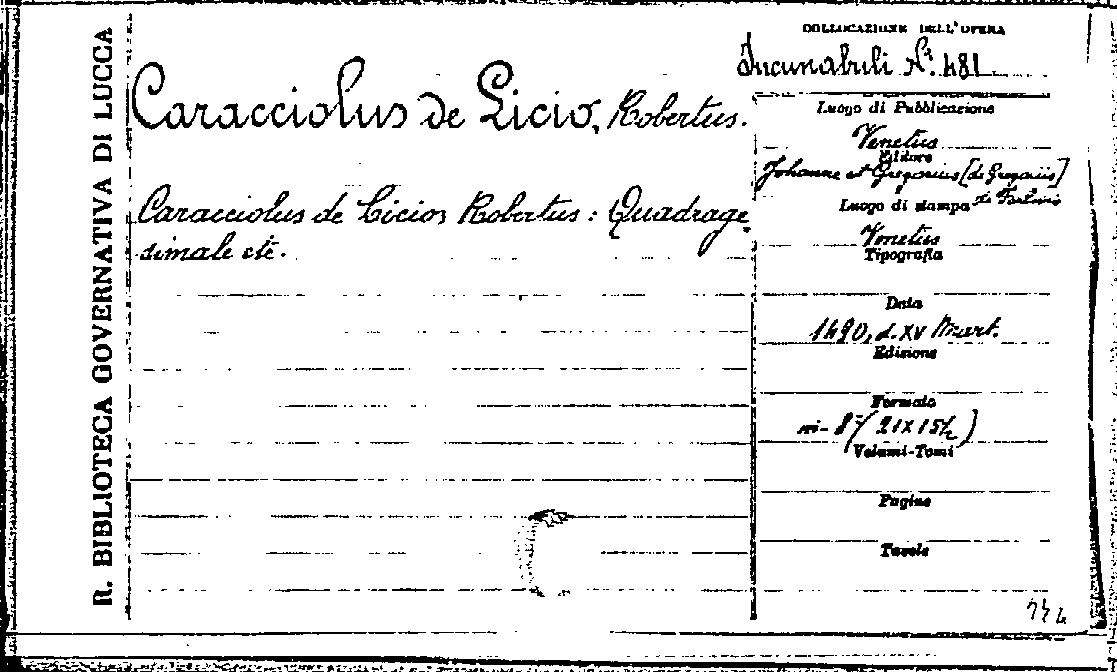 R. BIBLIOTECA GOVERNATIVA DI LUCCA
Caracciolus de Licio, Robertus.
Caracciolus de Licio, Robertus: Quadrage
simale etc.
COLLOCAZIONE DELL'OPERA
Incunabuli N. 481
Luogo di Pubblicazione
Venetiis
Editore
Johanne et Gregorius [de Gregoriis]
Luogo di stampa de Forlivio
Venetiis
Tipografia
Data
1490, d. XV Mart.
Edizione
Formato
in-8° (21X15½)
Volumi-Tomi
Pagine
Tavole